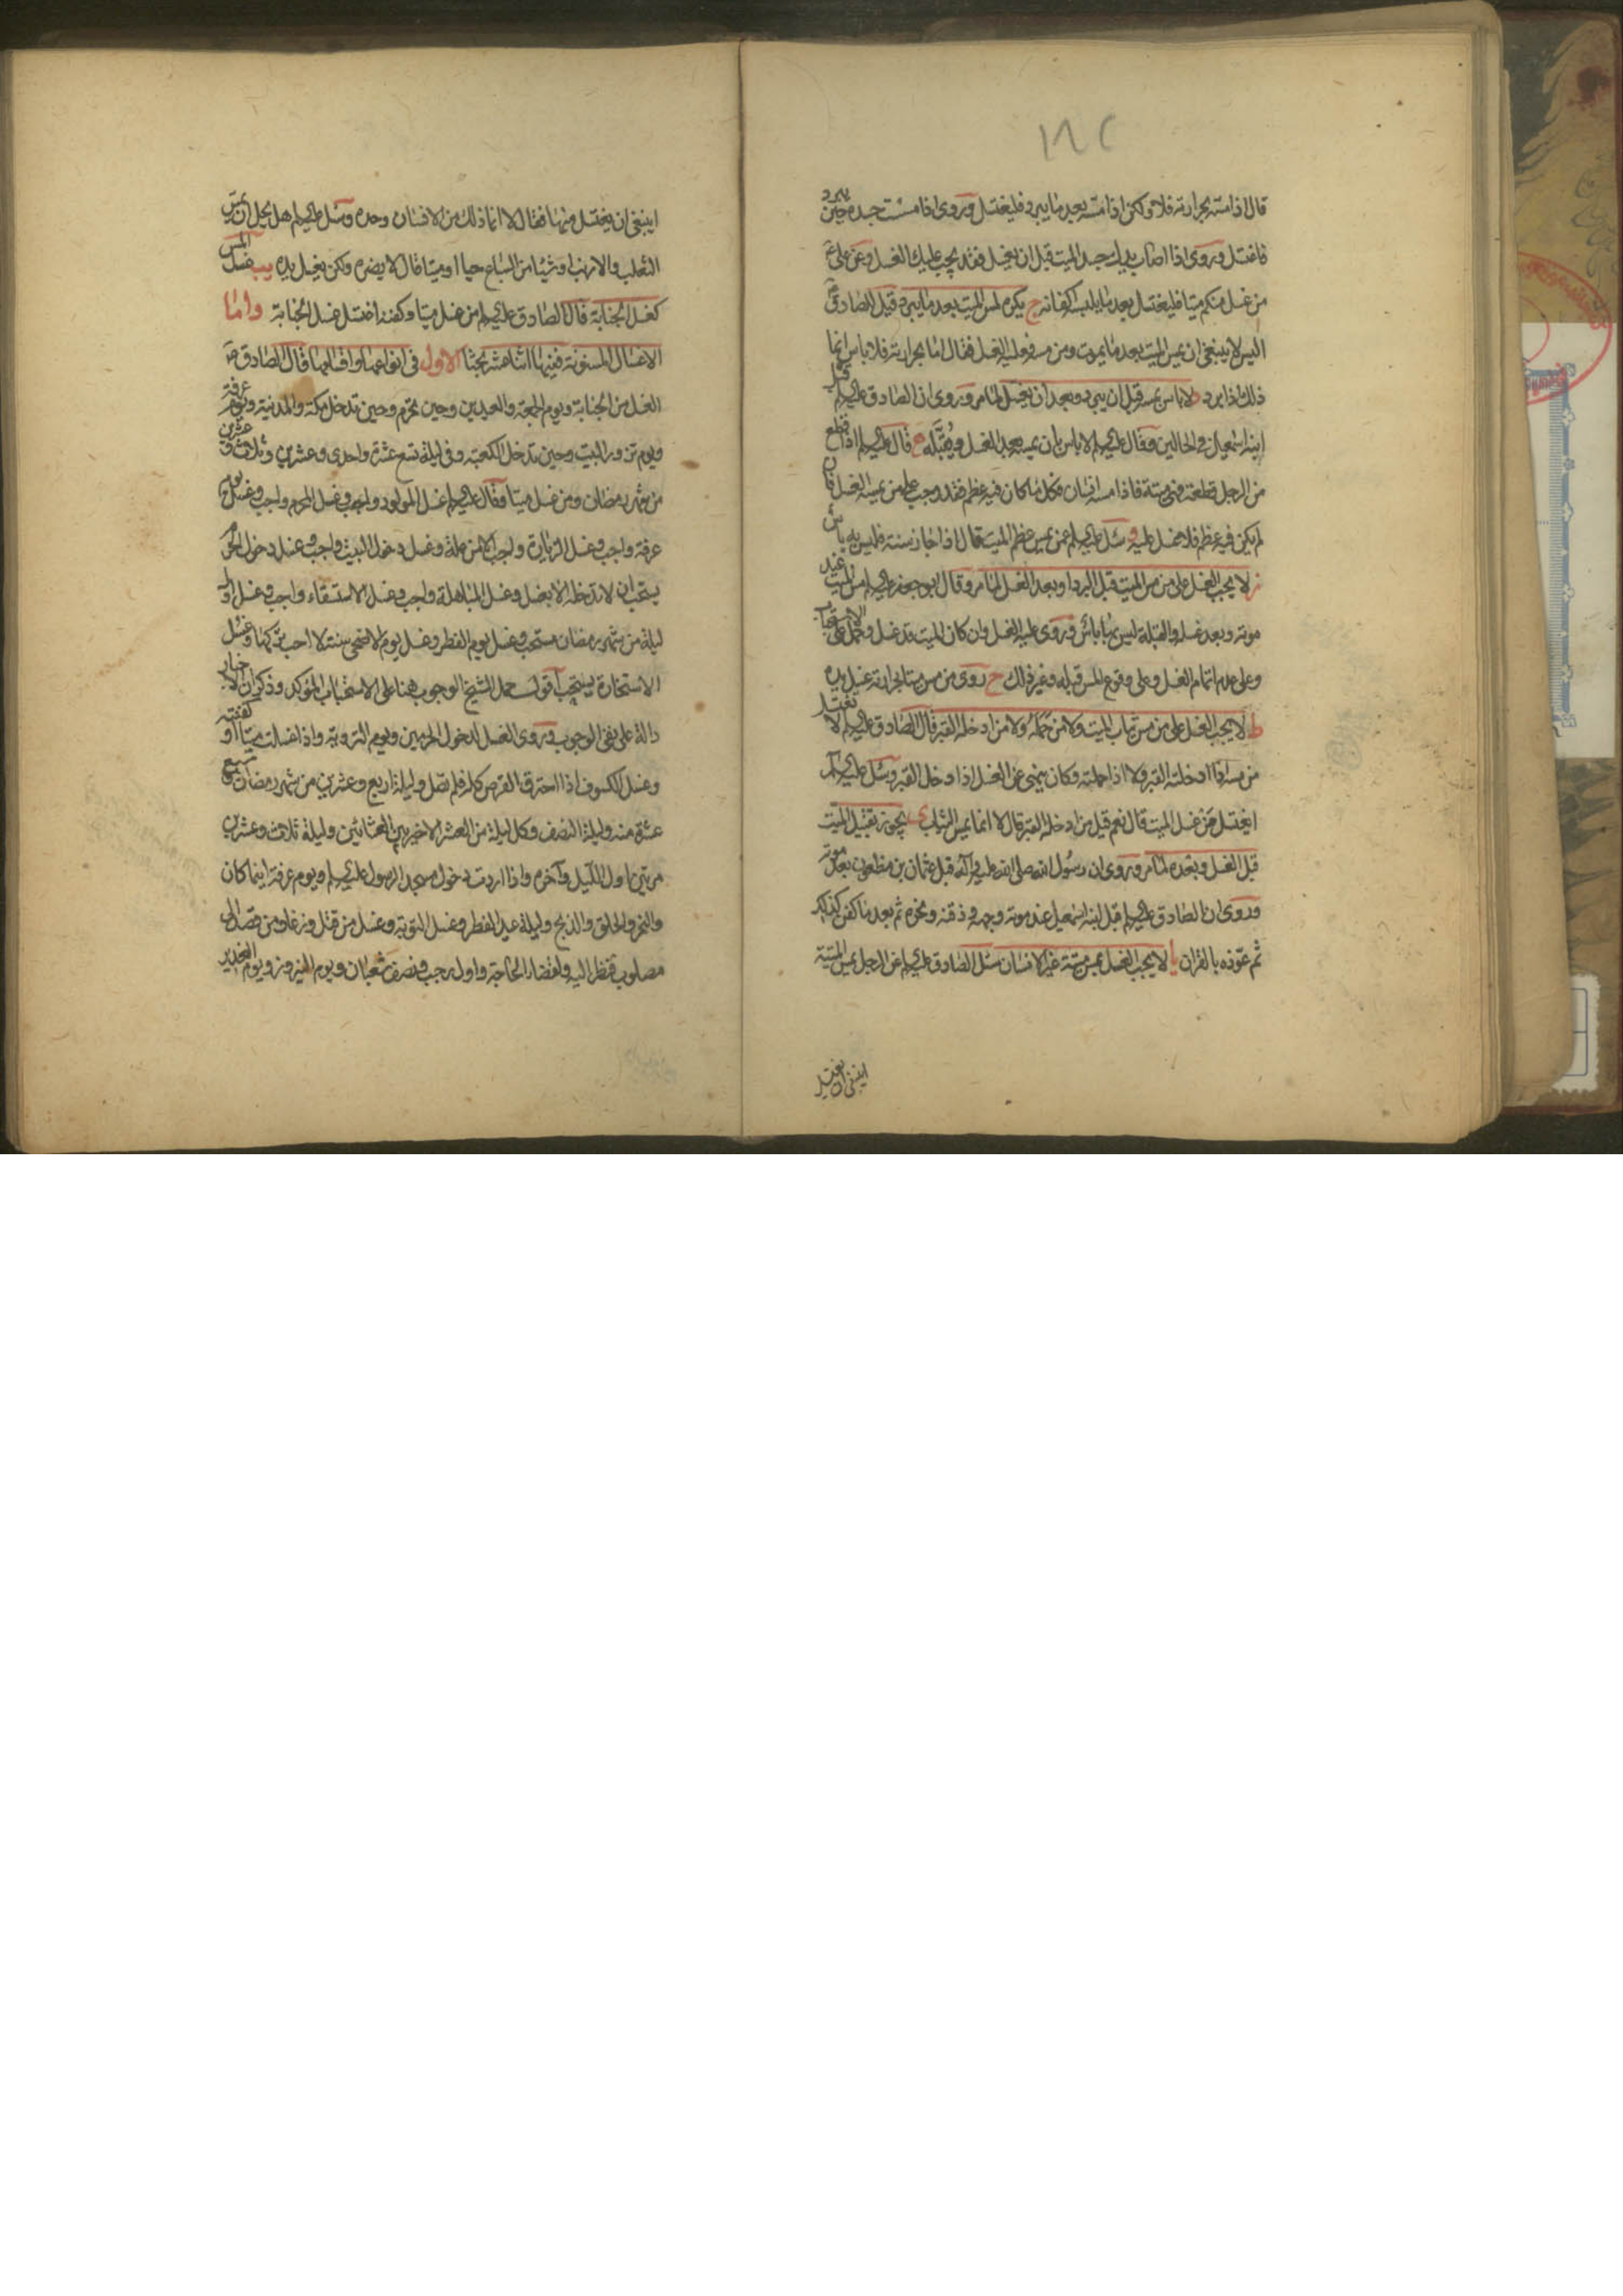 ١٨٢
قال اذا مسته بحرارته فلا ولكن اذا مسه بعد ما يبرد فليغتسل وروى اذا مسست جسده حين يبرد
فاغتسل وروى اذا اصاب يدك جسد الميت قبل ان يغسل فقد يجب عليك الغسل وعن علي ع
من غسل منكم ميتا فليغتسل بعد ما يلبسه اكفانه ج يكره لمس الميت بعد ما يبرد قيل للصادق ع
اليس لا ينبغي ان يمس الميت بعد ما يموت ومن مسه فعليه الغسل فقال اما بحرارته فلا باس انما
ذلك اذا برد د لا باس بمسه قبل ان يبرد وبعد ان يغسل لما مر وروى ان الصادق عليه السلام قبل
ابنه اسمعيل في الحالين وقال عليه السلام لا باس بان يمسه بعد الغسل ويُقبّله ه قال عليه السلام اذا قطع
من الرجل قطعة فهي ميتة فاذا مسه انسان فكل ما كان فيه عظم فقد وجب على من يمسه الغسل فان
لم يكن فيه عظم فلا غسل عليه و سئل عليه السلام عمن يمس عظم الميت قال اذا جاز سنة فليس به باس
ز لا يجب الغسل على من مس الميت قبل البرد او بعد الغسل لما مر وقال ابو جعفر عليه السلام مس الميت عند
موته وبعد غسله والقبلة ليس بها باس وروى عليه الغسل وان كان الميت قد غسل وحمل على الاستحباب
وعلى عدم اتمام الغسل وعلى وقوع المس قبله وغير ذلك ح روى من مس ميتا بحرارته غسل يده
ط لا يجب الغسل على من مس ثياب الميت ولا من حمله ولا من ادخله القبر قال الصادق عليه السلام لا تغتسل
من مسه اذا ادخلته القبر ولا اذا حملته وكان ينهى عن الغسل اذا دخل القبر وسئل عليه السلام
ايغتسل من غسل الميت قال نعم قيل من ادخله القبر قال لا انما يمس الثياب ى يجوز تقبيل الميت
قبل الغسل وبعده لما مر وروى ان رسول الله صلى الله عليه وآله قبل عثمان بن مظعون بعد موته
وروى ان الصادق عليه السلام قبل ابنه اسمعيل عند موته وجهه وذقنه ونحره ثم بعد ما كفن كذلك
ثم عوّذه بالقران يا لا يجب الغسل بمس ميتة غير الانسان سئل الصادق عليه السلام عن الرجل يمس الميتة
اينبغي ان يغتسل
اينبغي ان يغتسل منها فقال لا انما ذلك من الانسان وحده وسئل عليه السلام هل يحل ان يمس
الثعلب والارنب او شيئا من السباع حيا او ميتا قال لا يضره ولكن يغسل يده يب غسل المس
كغسل الجنابة قال الصادق عليه السلام من غسل ميتا وكفنه اغتسل غسل الجنابة واما
الاغسال المسنونة ففيها اثنا عشر بحثا الاول في انواعها واقسامها قال الصادق ع
الغسل من الجنابة ويوم الجمعة والعيدين وحين تحرم وحين تدخل مكة والمدينة ويوم عرفة
ويوم تزور البيت وحين تدخل الكعبة وفي ليلة تسع عشرة واحدى وعشرين وثلاث وعشرين
من شهر رمضان ومن غسل ميتا وقال عليه السلام غسل المولود واجب وغسل المحرم واجب وغسل يوم
عرفة واجب وغسل الزيارة واجب الا من علة وغسل دخول البيت واجب وغسل دخول الحرم
يستحب ان لا تدخله الا بغسل وغسل المباهلة واجب وغسل الاستسقاء واجب وغسل اول
ليلة من شهر رمضان مستحب وغسل يوم الفطر وغسل يوم الاضحى سنة لا احب تركها وغسل
الاستخارة يستحب اقول حمل الشيخ الوجوب هنا على الاستحباب المؤكد وذكر ان الاخبار
دالة على نفي الوجوب وروى الغسل لدخول الحرمين ويوم التروية واذا غسلت ميتا او كفنته
وغسل الكسوف اذا احترق القرص كله فلم تصل وليلة اربع وعشرين من شهر رمضان وسبع
عشرة منه وليلة النصف وكل ليلة من العشر الاخير بين العشائين وليلة ثلاث وعشرين
مرتين اول الليل وآخره واذا اردت دخول مسجد الرسول عليه السلام ويوم عرفة اينما كان
والنحر والحلق والذبح وليلة عيد الفطر وغسل التوبة وغسل من قتل وزغا ومن قصد الى
مصلوب فنظر اليه ولقضاء الحاجة واول رجب ونصف شعبان ويوم النيروز ويوم الغدير